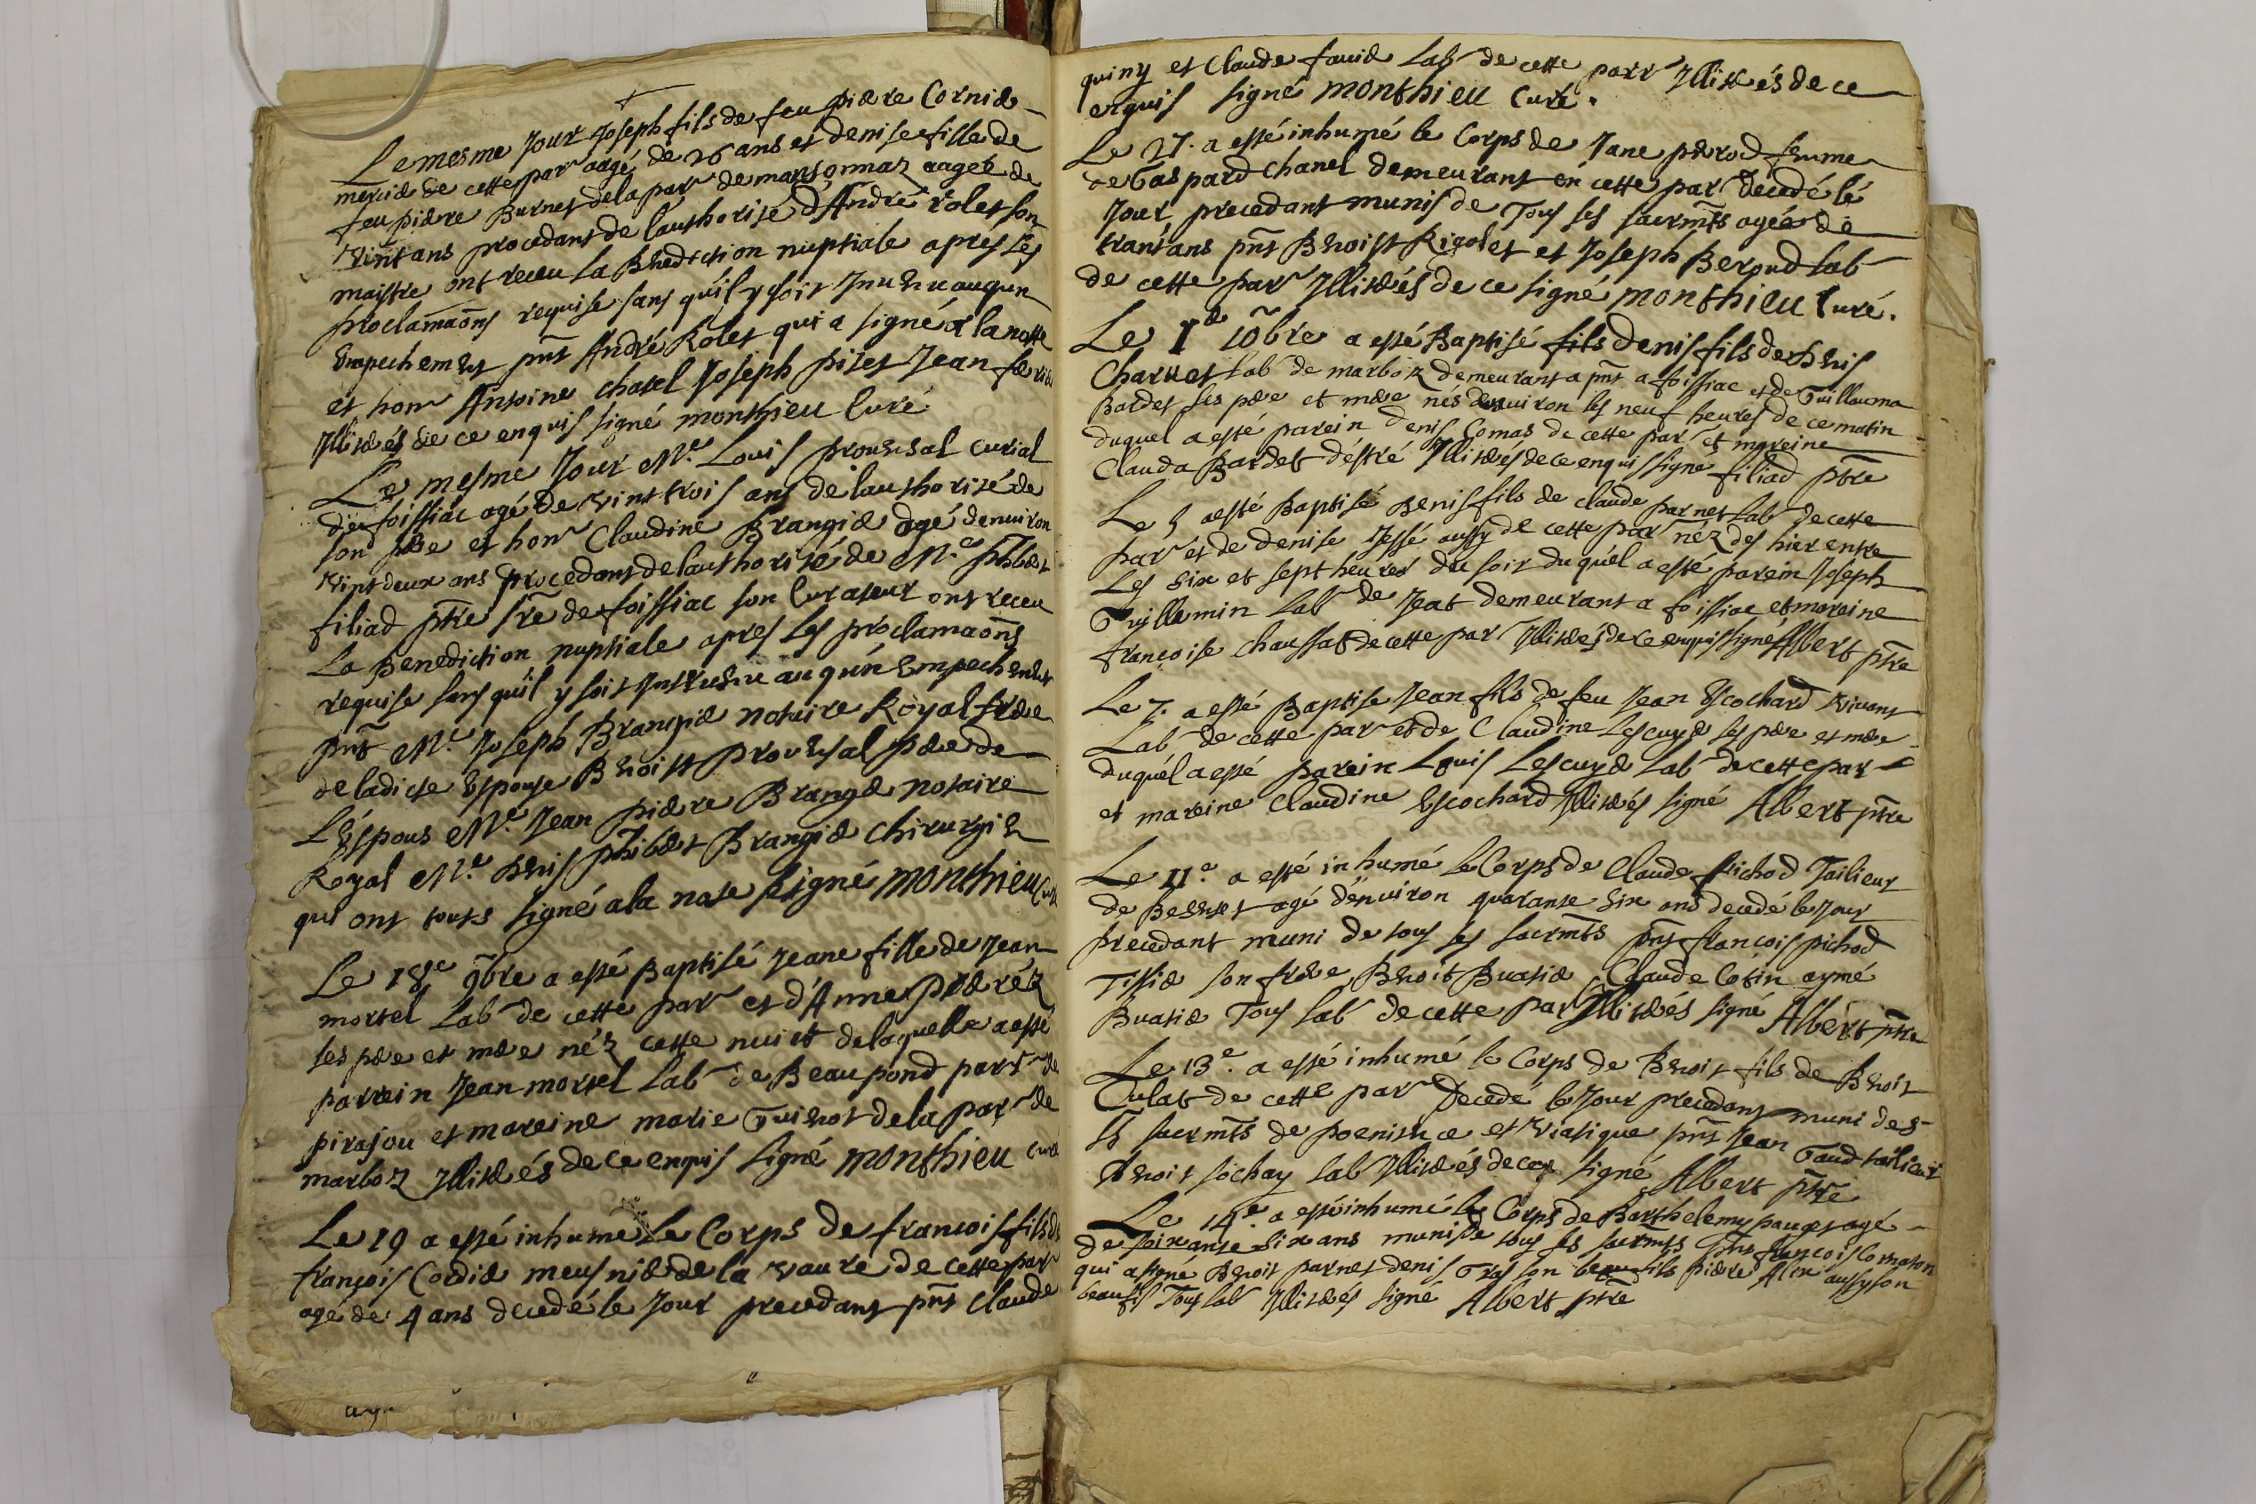 Le mesme Jour Joseph fils de feu pierre Cornier
mercier de cette par aagé de 26 ans et denise fille de
feu pierre Burnet de la par de mansonnaz aageé de
vint ans procedant de lauthorité d'André rolet son
maistre ont receu la Benediction nuptiale apres les
proclamaons requise sans qu'il y soit Intervenu auqun
Empechement pnt André Rolet qui a signé a la notte
et hon Antoine chatel Joseph pitet Jean
Illiterés de ce enquis signé monthieu Curé
Le mesme Jour Me Louis provensal curial
de foissiac agé de vint trois ans de lauthorité de
son pere et hon Claudine Brangier agé denviron
vint deux ans procedant de lauthorité de Me philibert
filiad ptre sre de foissiac son Curateur ont receu
La Benediction nuptiale apres les proclamaons
requise sans quil y soit Intervenu auqu'un Empechement
pnt Me Joseph Brangier notaire Royal frere
de ladicte Espouse Benoist provensal pere de
L'Espous Me Jean pierre Branger notaire
Royal Me Denis philibert Brangier chirurgien
qui ont touts signé a la note signé monthieu Curé
Le 18e 9bre a esté Baptisé Jeane fille de Jean
mortel Lab de cette par et d'Anne perréz
ses pere et mere néz cette nuict de laquelle a esté
parrein Jean mortel Lab de Beaupond parr de
pirajou et mareine marie Guienot de la par de
marboz Illiterés de ce enquis signé monthieu curé
Le 19 a esté inhumé Le Corps de francois fils de
françois Cordier meusnier de la vavre de cette par
agé de 4 ans decedé le Jour precedant pnt Claude
quiny et Claude favier Lab de cette parr Illiterés de ce
enquis signé monthieu Curé.
Le 27. a esté inhumé le Corps de Jane perrod femme
de Gaspard chanel demeurant en cette par decedé lé
Jour precedant munis de Tous ses sacrmts ageé de
trant ans pnt Benoist Rigolet et Joseph Beroud Lab
de cette par Illiterés de ce signé monthieu Curé.
Le 1er 10bre a esté Baptisé fils denis fils de Denis
Charvet Lab de marboz demeurant a pnt a foissiac et de Guillauma
Bardet ses pere et mere nés denviron les neuf heures de ce matin
duquel a esté parein denis Comas de cette par et mareine
Clauda Bardet d'estré Illiterés de ce enquis signe filiad ptre
Le 5 a esté Baptisé Denis fils de claude parnet Lab de cette
par et de denise Jessé aussy de cette par néz des hier entre
Les six et sept heures du soir duquél a esté parein Joseph
Guillemin Lab de Jeat demeurant a foissiac et mareine
francoise chaussat de cette par Illiterés de ce enquis signé Albert ptre
Le 7. a esté Baptise Jean fils de feu Jean Escochard vivant
Lab de cette par et de Claudine Lescuyer ses pere et mere
duquél a esté parein Louis Lescuyer Lab de cette par
et mareine Claudine Escochard Illiterés signé Albert ptre
Le 11e a esté inhumé le Corps de Claude pichod Tailieur
de Beenet agé d'environ quarante six ans decedé le Jour
precedant muni de tous ses sacrmts pnt françois pichod
Tissier son frere Benoit Buatier Claude Cotin aymé
Buatier Tous Lab de cette par Illiterés signé Albert ptre
Le 13e. a esté inhumé le Corps de Benoit fils de Benoit
Culat de cette par Decedé le Jour precedant muni des
Ss sacrmts de poenitence et viatique pnt Jean Gaud tailieur
Benoit sochay Lab Illiterés de ce signé Albert ptre
Le 14e. a esté inhumé le Corps de Barthelemy pauget agé
de soixante six ans muni de tous ses sacrmts pnt françois Cornaton
qui a signé Benoit parnet denis Gras son beau fils pierre Alex aussy son
beau fis Tous Lab Illiterés signé Albert ptre